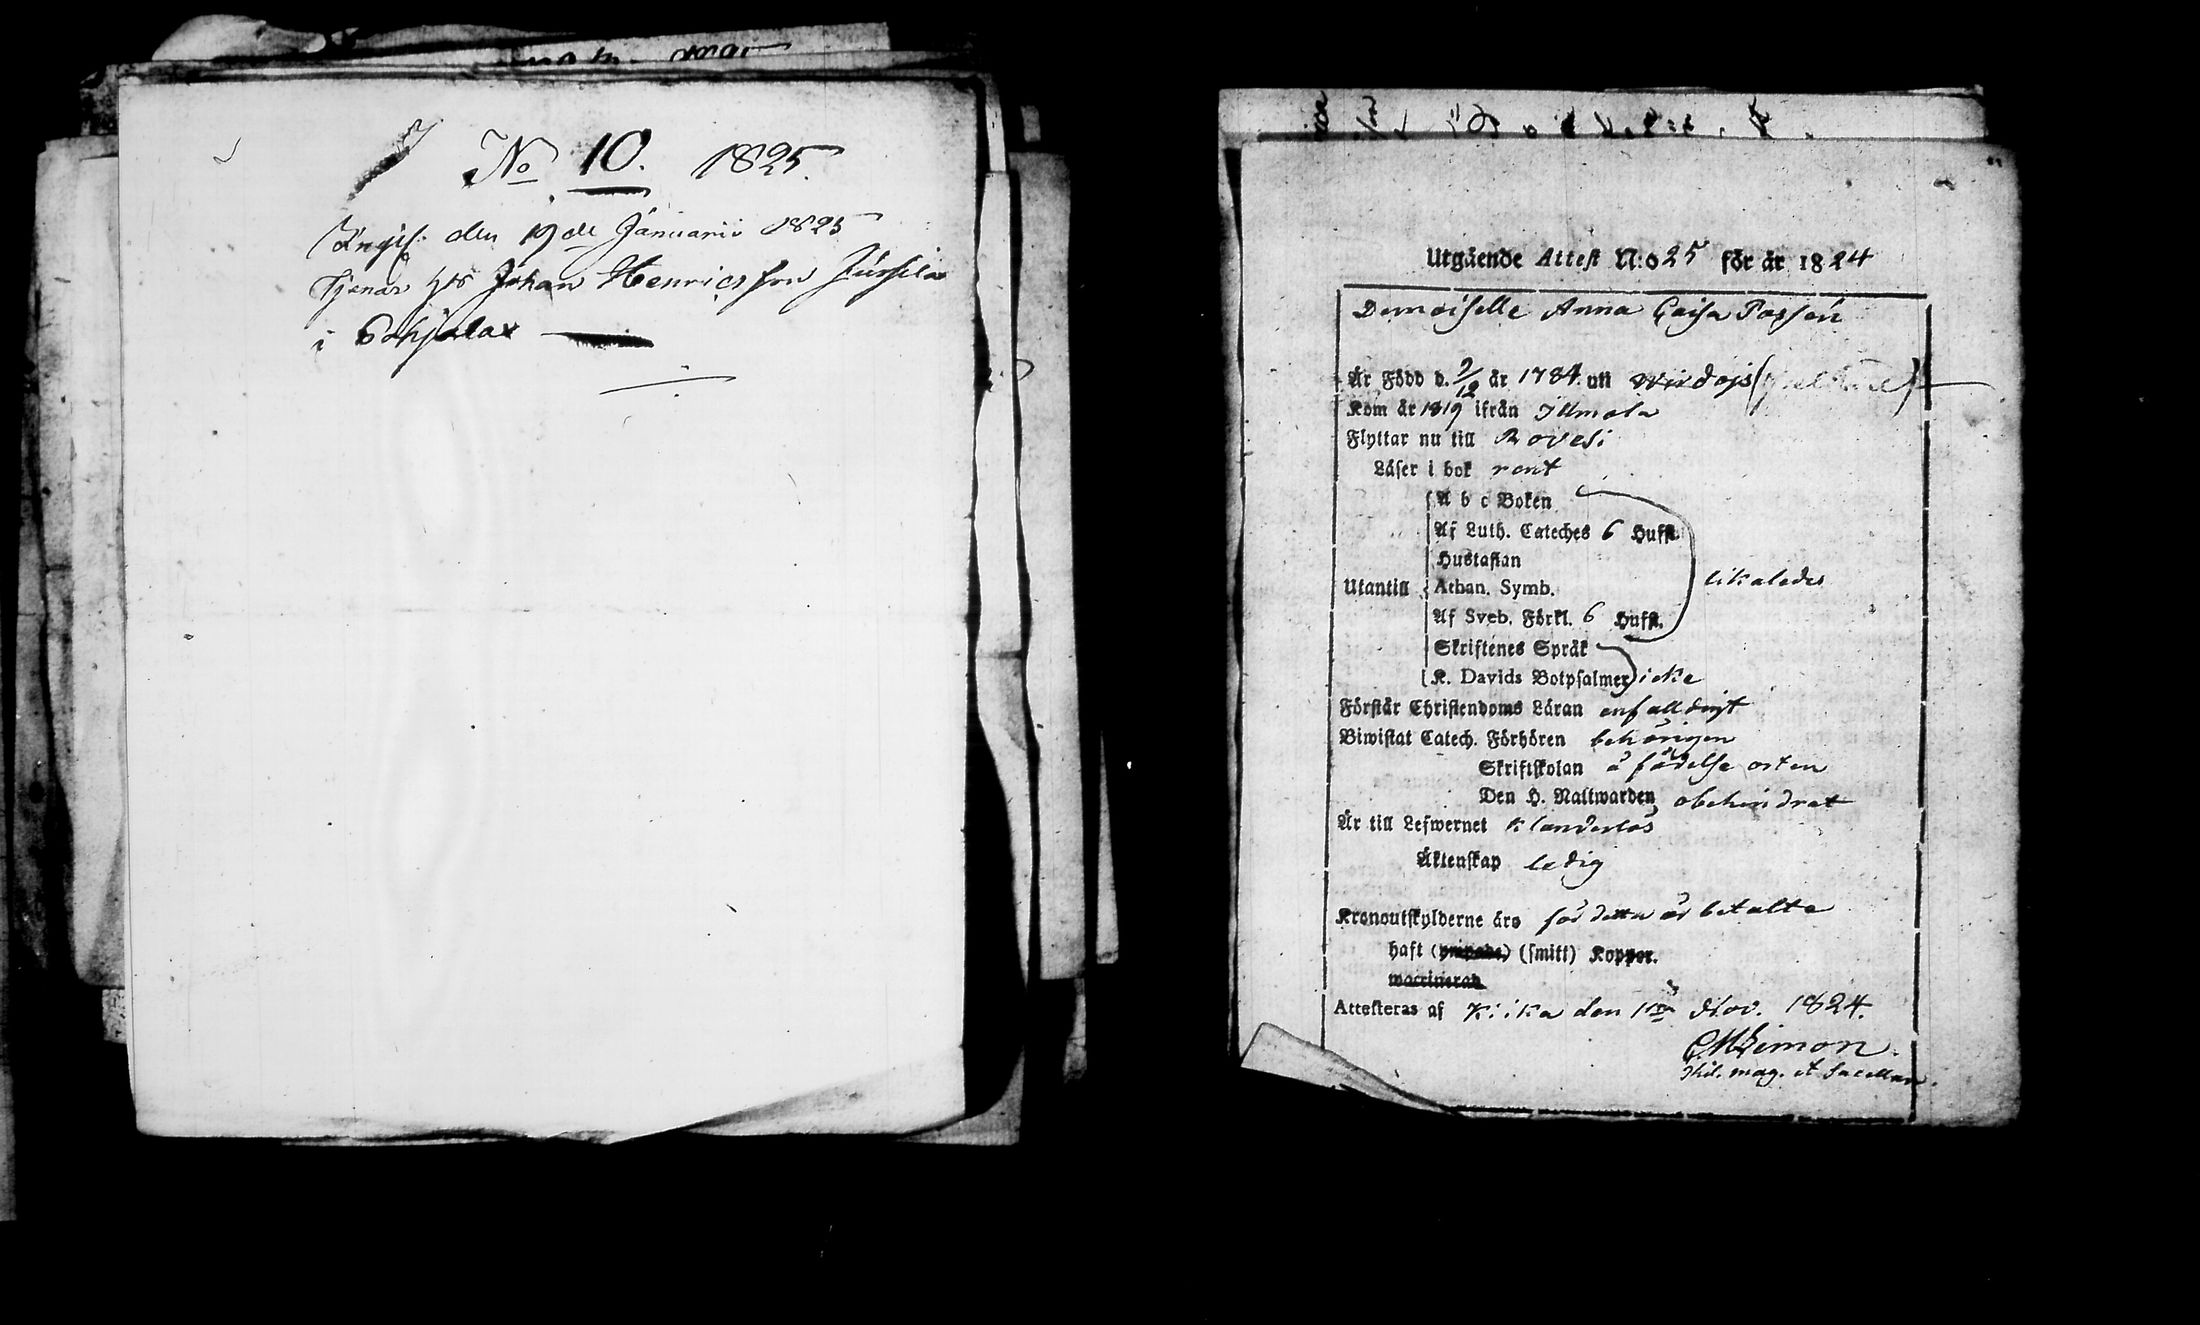 No 10. 1825.
Ingif: den 19de Januarii 1825
Tjenar hos Johan Henricsson
i Pohjalax
Utgående Attest N:o 25 för år 1824
Demoiselle Anna Caisa
Är Född d. 9/12 år 1784 uti Wirdois
Kom år 1819 ifrån Ilmola
Flyttar nu till Rovesi
Läser i bok rent
A b c Boken
Af Luth. Cateches 6 Hufst.
Hustaflan
Utantill Athan. Symb. likaledes
Af Sveb. Förkl. 6 Hufst.
Skriftenes Språk
K. Davids Botpsalmer icke
Förstår Christendoms Läran enfalldigt
Biwistat Catech. Förhören behörigen
Skriftskolan å födelse orten
Den H. Nattwarden obehindrat
Är till Lefwernet klanderlös
Äktenskap ledig
Kronoutskylderne äro för detta år betalte
haft (ympade) (smitt) Koppor.
waccinerad
Attesteras af Kiika den Nov. 1824.
Simon.
Phil. mag. et Sacellan.